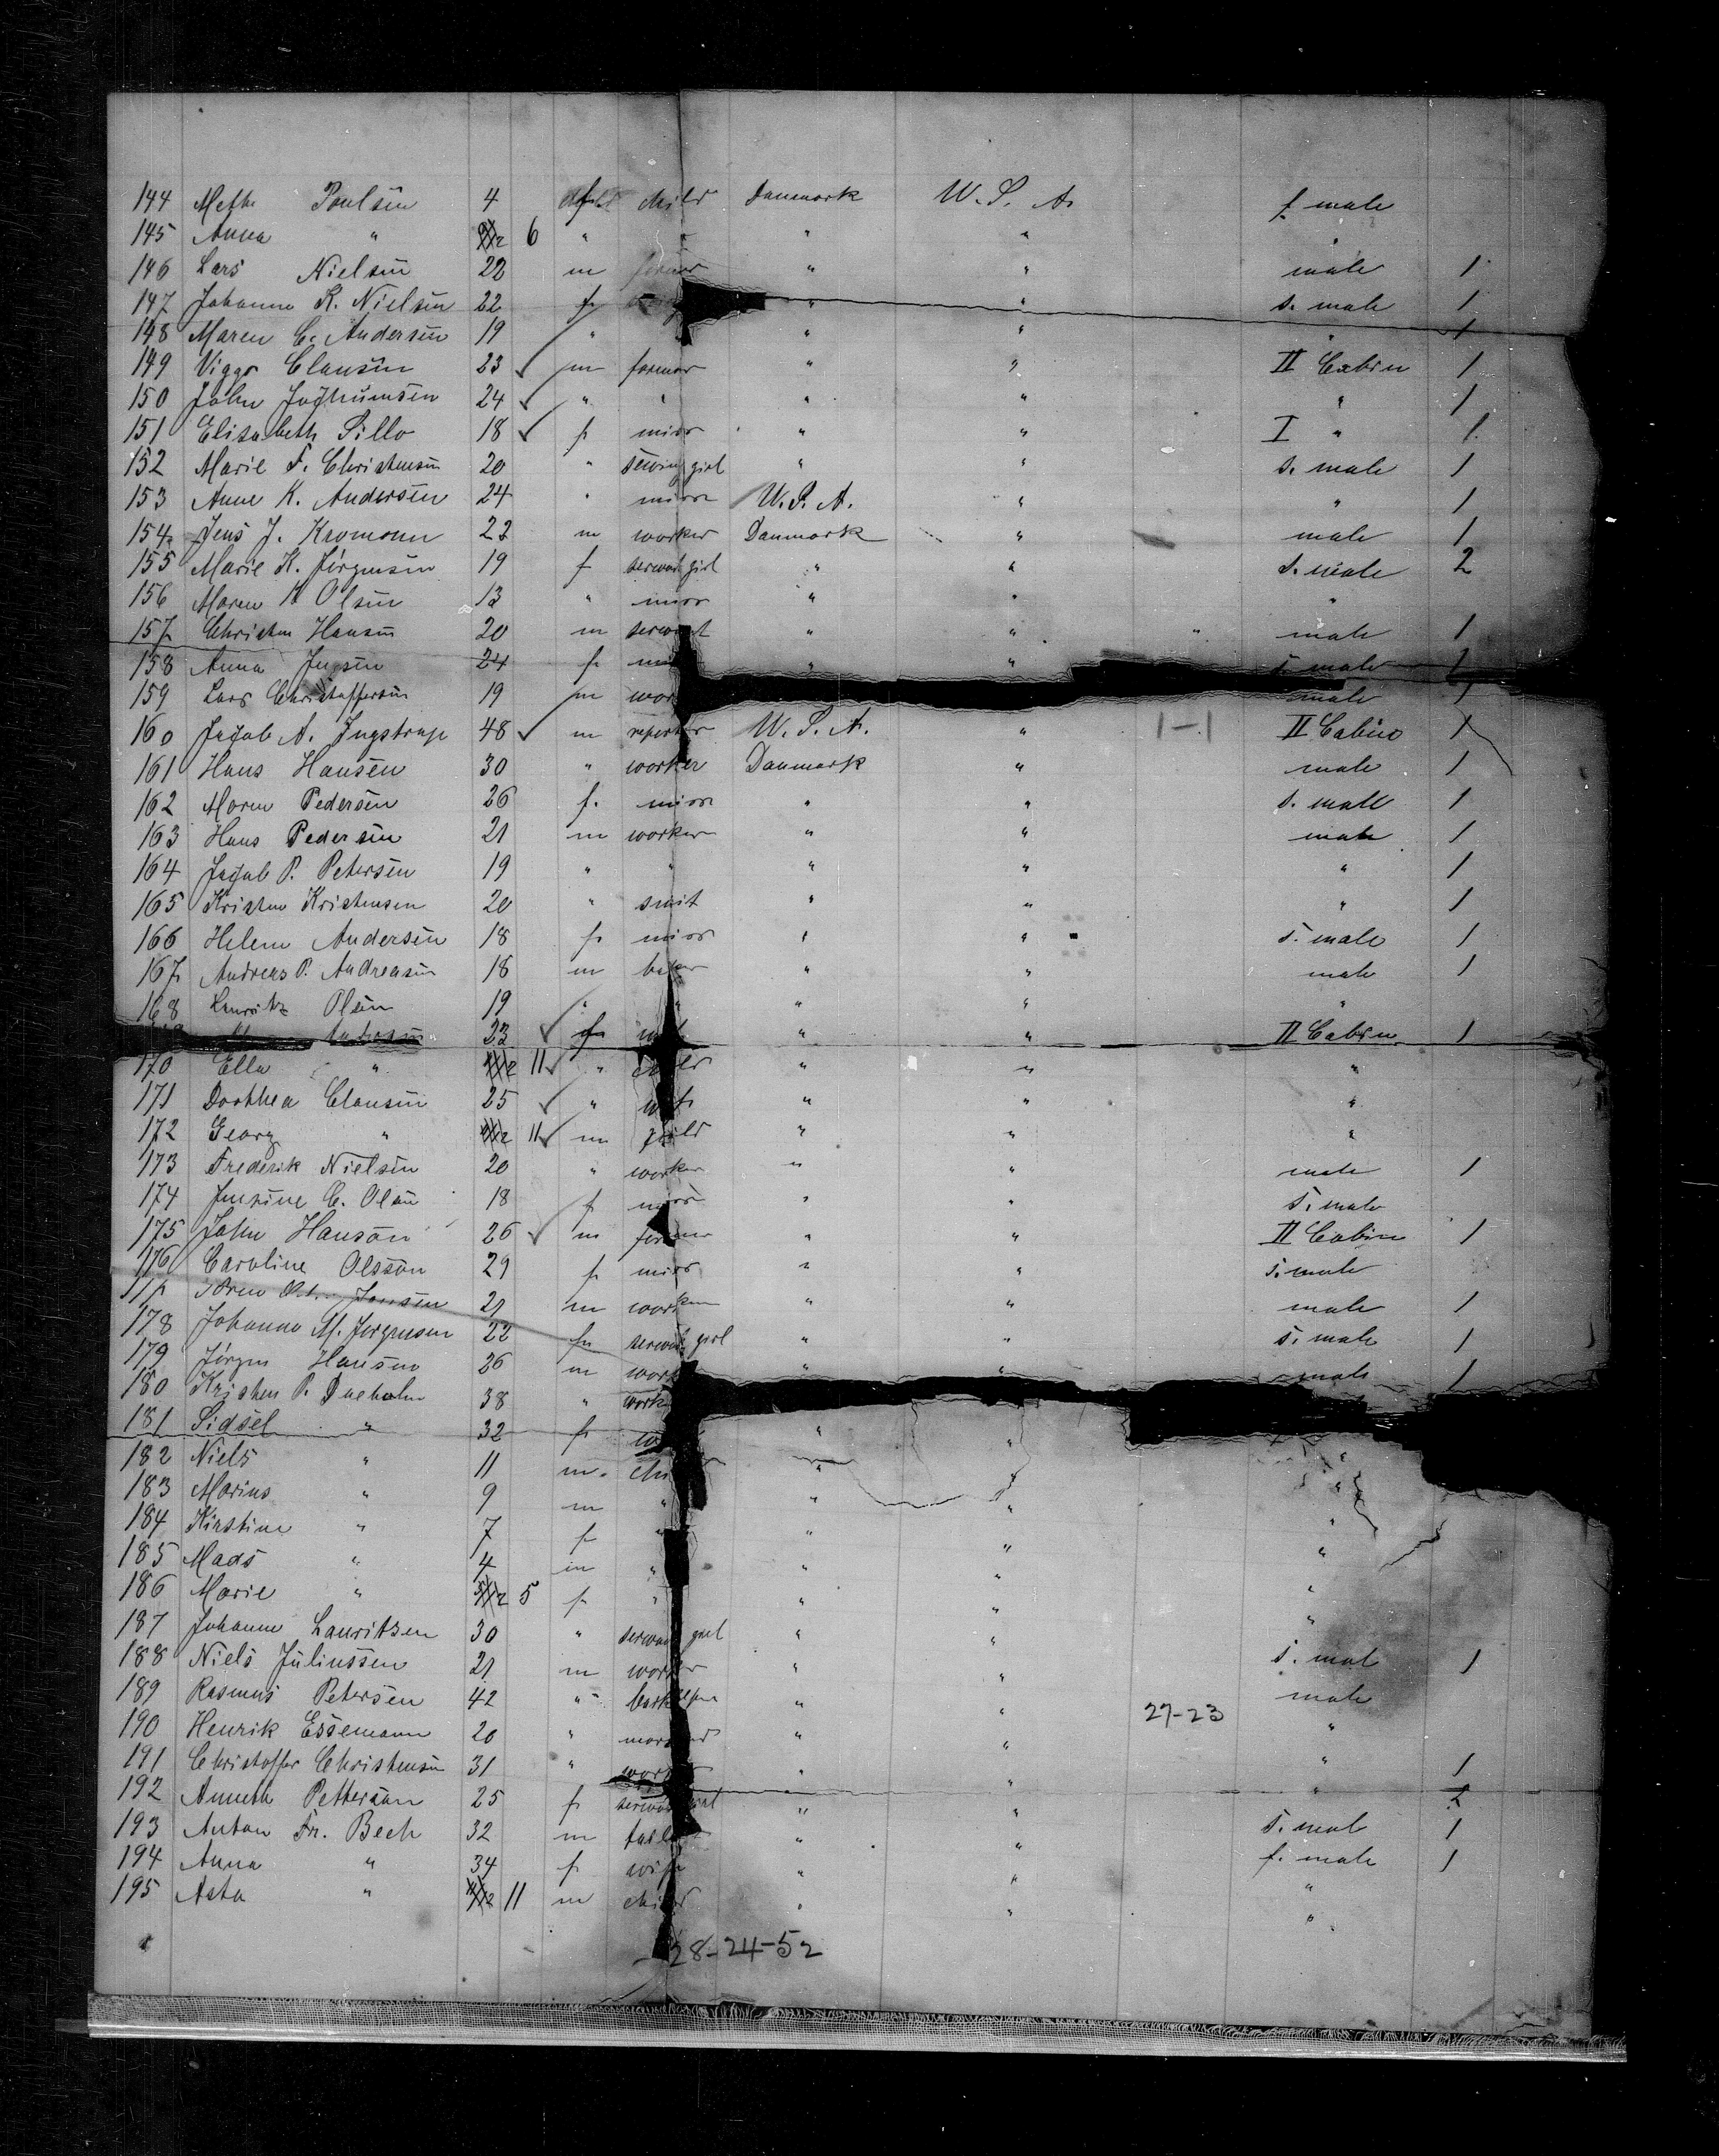 144 Methe Poulsen 4 f child Danmark U. S. A. f male
145 Anna " 6 " " " "
146 Lars Nielsen 22 m " " male 1
147 Johanne K. Nielsen 22 f " " s. male 1
148 Maren C. Andersen 19 " " " " 1
149 Viggo Clausen 23 ✓ m farmer " " II Cabin 1
150 John 24 ✓ " " " " " 1
151 Elisabeth Sillo 18 ✓ f miss " " I " 1
152 Marie F. Christensen 20 " girl " " s. male 1
153 Anne K. Andersen 24 " miss U. S. A. " " 1
154 Jens J. Kromann 22 m worker Danmark " male 1
155 Marie K. Jörgensen 19 f servant girl " " s. male 2
156 Maren K Olsen 13 " miss " " "
157 Christen Hansen 20 m servant " " " male 1
158 Anna 24 f " " s. male 1
159 Lars Christoffersen 19 m wor male 1
160 Jacob A. Ingstrup 48 ✓ m U. S. A. " 1-1 II Cabin 1
161 Hans Hansen 30 " worker Danmark " male 1
162 Maren Pedersen 26 f. miss " " s. male 1
163 Hans Pedersen 21 m worker " " male 1
164 Jacob P. Petersen 19 " " " " " 1
165 Kristen Kristensen 20 " smit " " " 1
166 Helene Andersen 18 f miss " " s. male 1
167 Andreas P. Andreasen 18 m " " male 1
168 Lauritz Olsen 19 " " " " "
23 ✓ f " " II Cabin 1
170 Ella " 11 ✓ " child " " "
171 Dorthea Clausen 25 ✓ " " " "
172 Georg " 11 ✓ m child " " "
173 Frederik Nielsen 20 " worker " " male 1
174 Jensine C. Olsen 18 f miss " " s. male
175 John Hanson 26 ✓ m farmer " " II Cabin 1
176 Caroline Olsson 29 f miss " " s. male
Jensen 21 m worker " " male 1
178 Johanne M. Jörgensen 22 f servant girl " " s. male 1
179 Jörgen Hansen 26 m work " " male 1
180 Kristen P. Dueholm 38 " work
181 Sidsel " 32 f " "
182 Niels " 11 m. chi " " "
183 Marius " 9 m " " " "
184 Kirstine " 7 f " " " "
185 Mads " 4 m " " " "
186 Marie " 5 f " " " "
187 Johanne Lauritzen 30 " servant girl " " "
188 Niels Juliussen 21 m worker " " s. mal 1
189 Rasmus Petersen 42 " " " male
190 Henrik Essemann 20 " " " 27-23 "
191 Christoffer Christensen 31 " work " " " 1
192 Petterson 25 f servant girl " " " 2
193 Anton Fr. Bech 32 m " " s. mal 1
194 Anna " 34 f wife " " f. male 1
195 Asta " 11 m child " " "
28-24-52